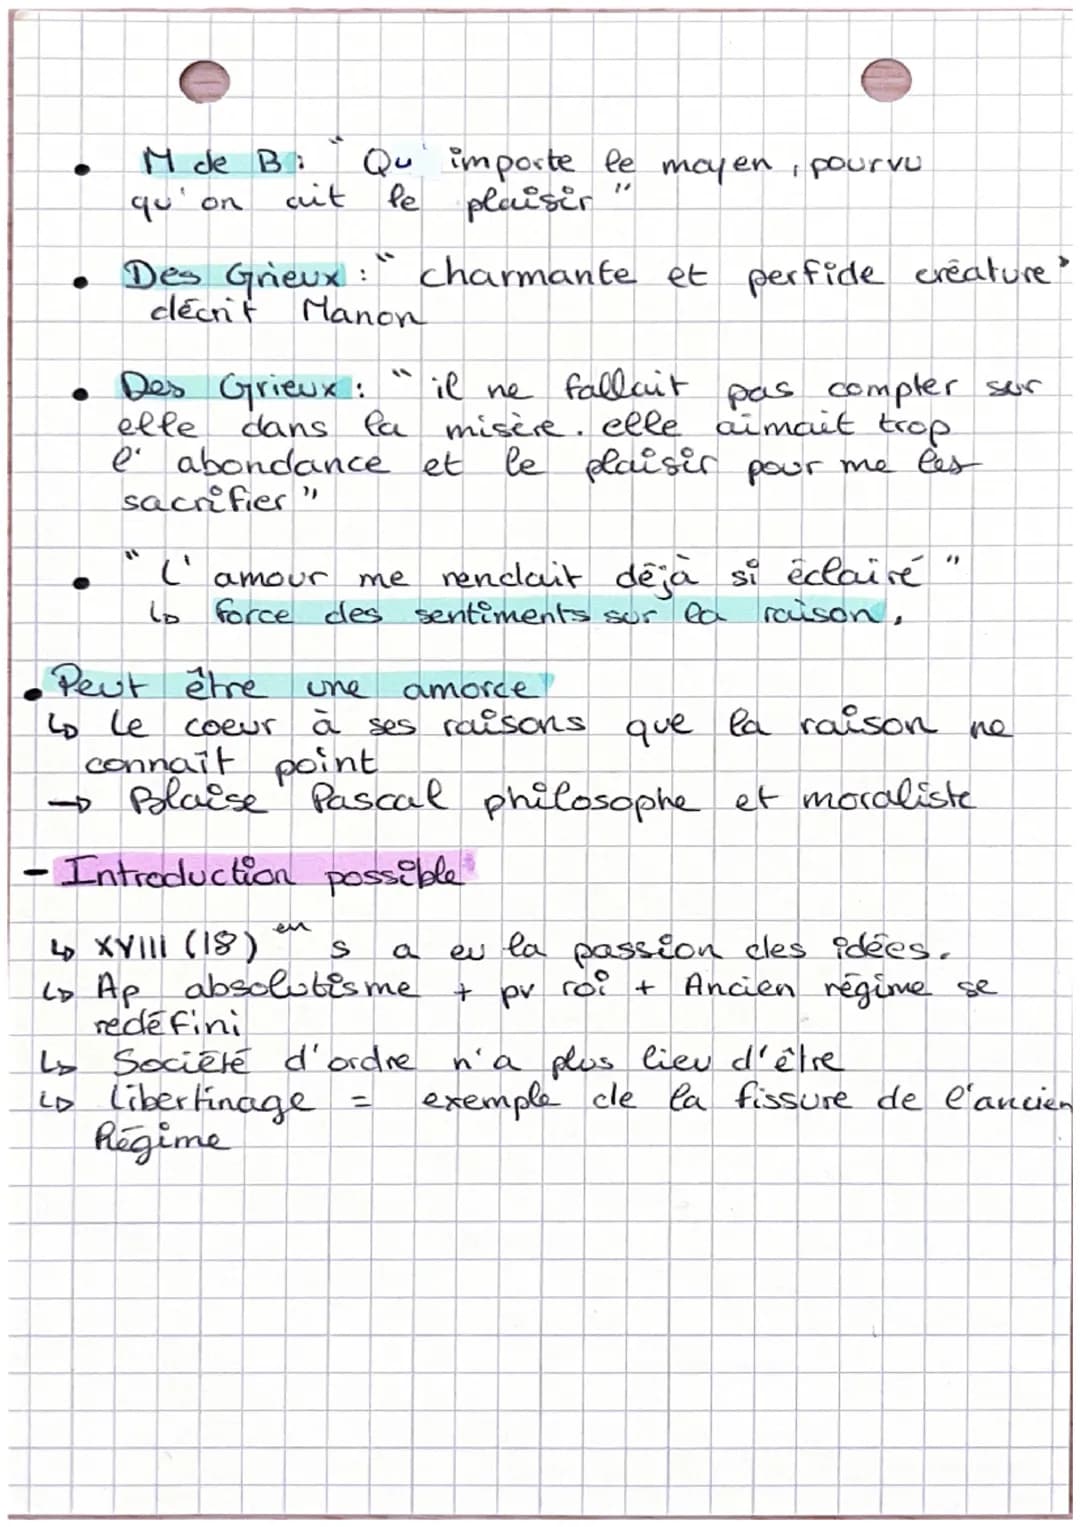 • M de B : " Qu' importe le moyen, pourvu
qu'on ait le plaisir "
• Des Grieux : " charmante et perfide créature "
décrit Manon
• Des Grieux : " il ne fallait pas compter sur
elle dans la misère. elle aimait trop
l' abondance et le plaisir pour me les
sacrifier "
• " L' amour me rendait déjà si éclairé "
↳ force des sentiments sur la raison.
• Peut être une amorce
↳ le coeur à ses raisons que la raison ne
connaît point
→ Blaise Pascal philosophe et moraliste
- Introduction possible
↳ XVIII (18) en s a eu la passion des idées.
↳ Ap absolutisme + pv roi + Ancien régime se
redéfini
↳ Société d'ordre n'a plus lieu d'être
↳ libertinage = exemple de la fissure de l'ancien
Régime